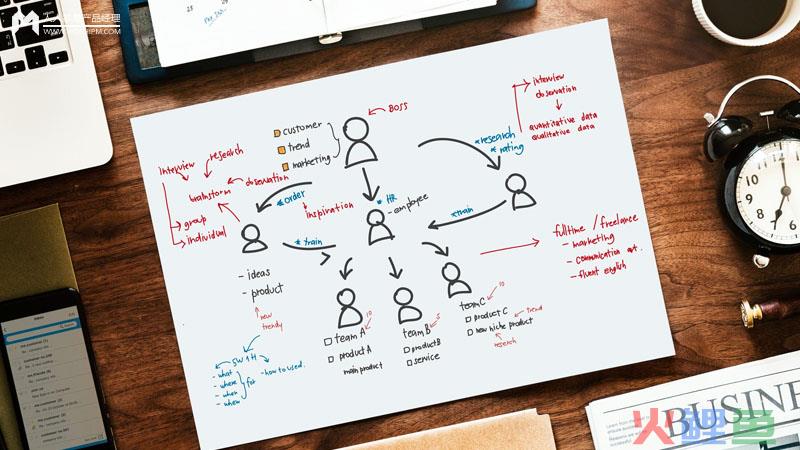 人人都是产品经理
WWW.WOSHIPM.COM
28
BOSS
customer
trend
marketing
interview
observation
quantitative data
qualitative data
*research
*rating
Interview
research
brainstorm
observation
group
individual
*order
inspiration
*HR
- employee
*train
*train
- ideas
- product
new
trendy
fulltime / freelance
- marketing
- communication
- fluent english
team A
10
product A
main product
team B
5
product B
service
team C
10
product C
trend
new niche product
research
5W1H
- what
- where
- when
for
- how to used.
BUSINE
火鲤鱼